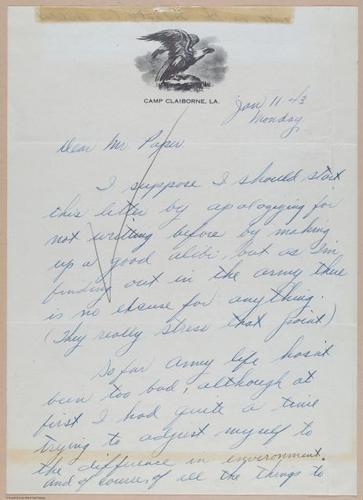 CAMP CLAIBORNE, LA.
Jan 11-43
Monday,
Dear Mr.
I suppose I should start
this letter by apologizing for
not writing before by making
up a good alibi, but as I'm
finding out in the army there
is no excuse for anything.
(They really stress that point)
So far army life hasn't
been too bad, although at
first I had quite a time
trying to adjust myself to
the difference in environment.
and of course, of all the things to